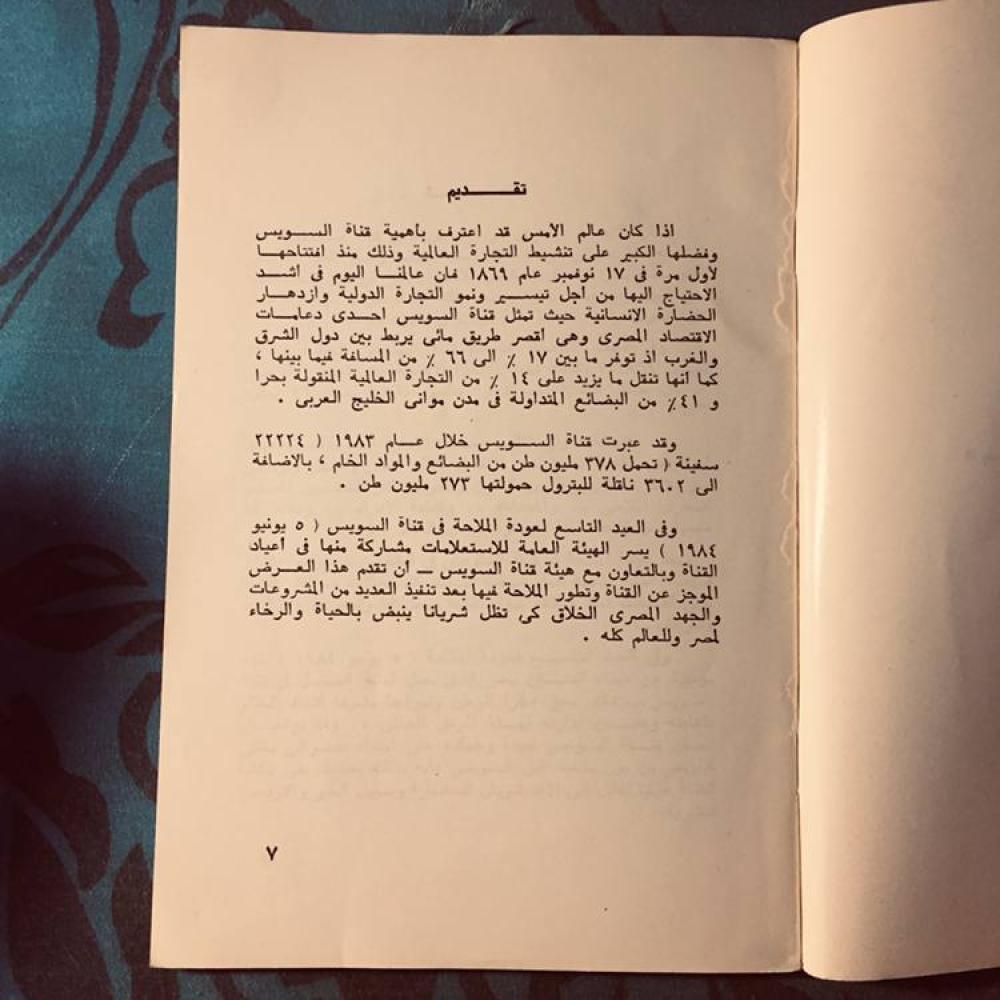 تقـــــديم
اذا كان عالم الأمس قد اعترف بأهمية قناة الســـويس
وفضلها الكبير على تنشيط التجارة العالمية وذلك منذ افتتاحهـا
لأول مرة فى ١٧ نوفمبر عام ١٨٦٩ فان عالمنـا اليوم فى أشـد
الاحتياج اليها من أجل تيسـير ونمو التجارة الدولية وازدهـار
الحضارة الانسانية حيث تمثل قناة السويس احـدى دعامـات
الاقتصاد المصرى وهى أقصر طريق مائى يربط بين دول الشرق
والغرب اذ توفر ما بين ١٧ ٪ الى ٦٦ ٪ من المسافة فيما بينها ،
كما أنها تنقل ما يزيد على ١٤ ٪ من التجارة العالمية المنقولة بحرا
و ٤١٪ من البضائع المتداولة فى مدن موانى الخليج العربى .
وقد عبرت قناة الســويس خلال عـام ١٩٨٣ ( ٢٢٢٢٤
سفينة ( تحمل ٣٧٨ مليون طن من البضائع والمواد الخام ، بالاضافة
الى ٣٦٠٢ ناقلة للبترول حمولتها ٢٧٣ مليون طن .
وفى العيد التاسع لعودة الملاحة فى قناة السويس ( ٥ يونيو
١٩٨٤ ) يسر الهيئة العامة للاستعلامات مشاركة منها فى أعياد
القناة وبالتعاون مع هيئة قناة السويس ــ أن تقدم هذا العـرض
الموجز عن القناة وتطور الملاحة فيها بعد تنفيذ العديد من المشروعات
والجهد المصرى الخلاق كى تظل شريانا ينبض بالحياة والرخاء
لمصر وللعالم كله .
٧